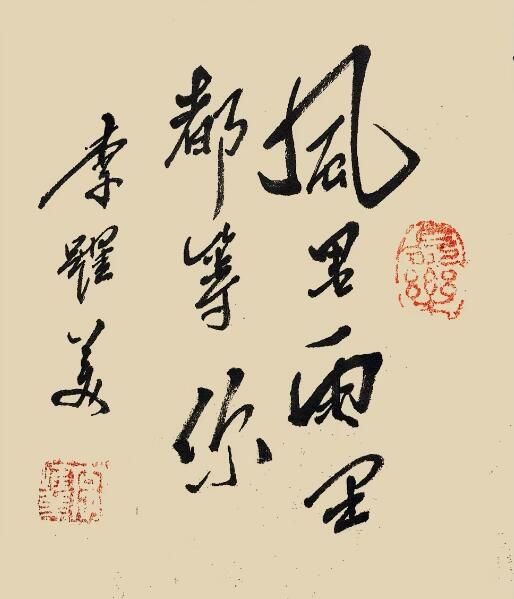 風里雨里
都等你
李耀美